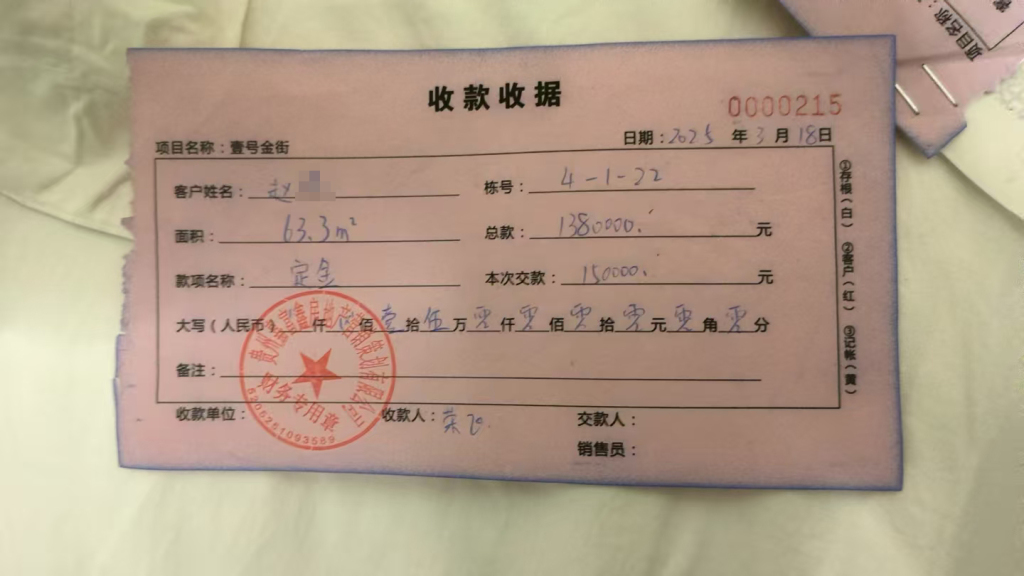 收款收据
0000215
日期：2025 年 3 月 18日
项目名称：壹号金街
客户姓名：赵
栋号：4-1-22
面积：63.3m²
总款：1380000. 元
款项名称：定金
本次交款：150000. 元
大写（人民币） 仟 佰 壹 拾 伍 万 零 仟 零 佰 零 拾 零 元 零 角 零 分
备注：
收款单位：
收款人：
交款人：
销售员：
①存根（白） ②客户（红） ③记帐（黄）
财务专用章
项目名称：